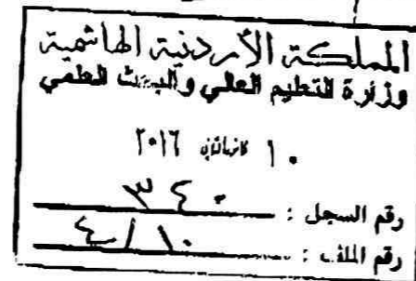 المملكة الأردنية الهاشمية
وزارة التعليم العالي والبحث العلمي
١٠ كانون ثاني ٢٠١٦
رقم السجل : ٣٤٠
رقم الملف : ٤/١٠